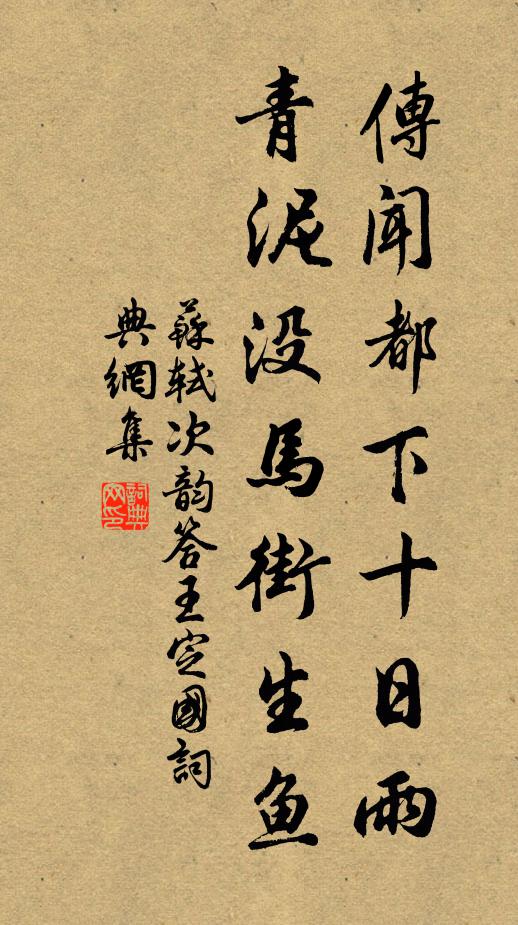 傳聞都下十日雨
青泥没馬街生魚
蘇軾次韵答王定國詞
典網集
詞典
网印